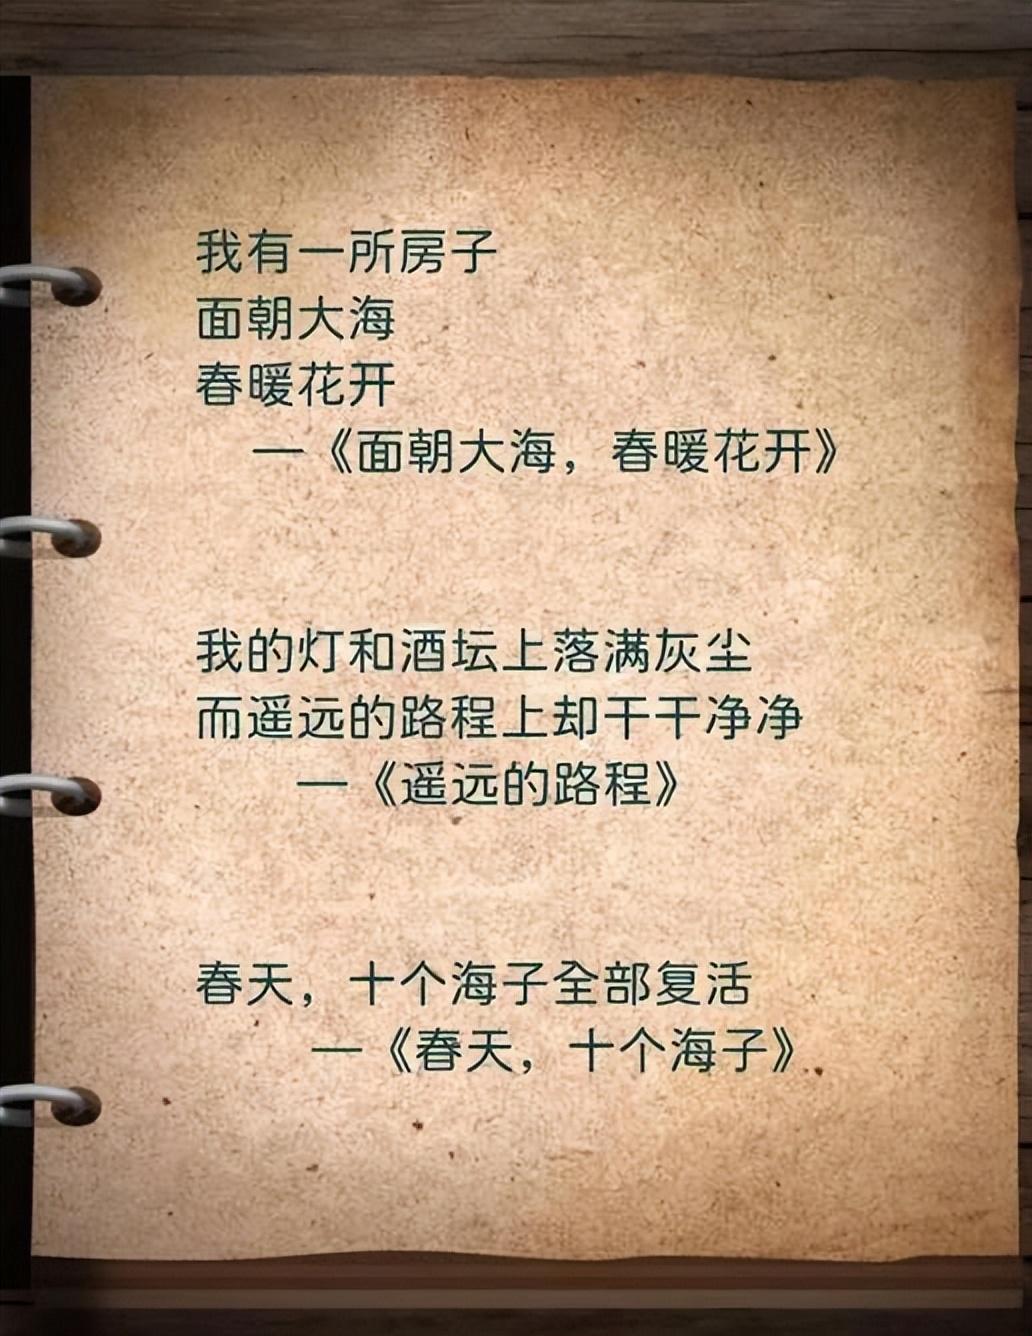 我有一所房子
面朝大海
春暖花开
—《面朝大海，春暖花开》
我的灯和酒坛上落满灰尘
而遥远的路程上却干干净净
—《遥远的路程》
春天，十个海子全部复活
—《春天，十个海子》